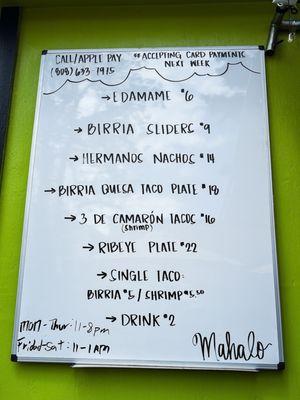 CALL/APPLE PAY
(808) 633-1915
** ACCEPTING CARD PAYMENTS
NEXT WEEK
→ EDAMAME $6
→ BIRRIA SLIDERS $9
→ HERMANOS NACHOS $14
→ BIRRIA QUESA TACO PLATE $18
→ 3 DE CAMARÓN TACOS $16
(shrimp)
→ RIBEYE PLATE $22
→ SINGLE TACO:
BIRRIA $5 / SHRIMP $5.50
→ DRINK $2
MON-Thur: 11-8pm
Friday-Sat: 11-1AM
Mahalo